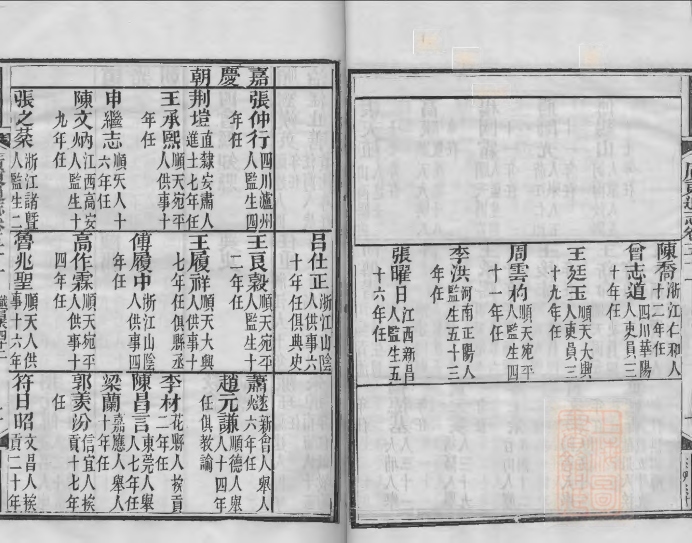 陳喬浙江仁和人十二年任
曾志道四川華陽人吏員三十年任
王廷玉順天大興人吏員三十九年任
周雲礿順天宛平人監生四十一年任
李洪河南正陽人監生五十三年任
張曜日江西新昌人監生五十六年任
呂仕正浙江山陰人供事六十年任俱典史
嘉慶朝
張仲行四川瀘州人監生四年任
荆塏直隸安肅人進士七年任
王承熙順天宛平人供事十年任
申繼志順天人十六年任
陳文炳江西高安人監生十九年任
張之棻浙江諸暨人監生二
王良穀順天宛平人監生十二年任
王履祥順天大興人供事十七年任俱縣丞
傅履中浙江山陰人供事四年任
高作霖順天宛平人供事十四年任
魯兆聖順天人供事十六年
蕭新會人舉人六年任
趙元謙順德人舉人十四年任俱教諭
李材花縣人拔貢二年任
陳昌言東莞人舉人七年任
梁蘭嘉應人舉人十年任
郭羙汾信宜人拔貢十七年任
符日昭文昌人拔貢二十年